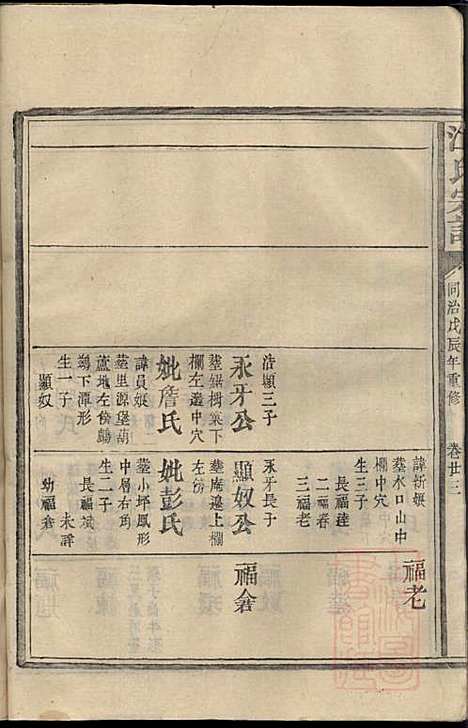 氏宗譜
同治戊辰年重修
卷廿三
浩顯三子
永牙公
塟鋸樹窠下
欄左邊中穴
妣詹氏
諱員娘
塟里源堡葫
蘆地左傍鸕
鷀下潭形
生一子
顯奴
諱新娘
塟水口山中
欄中穴
生三子
長福
二福春
三福老
永牙長子
顯奴公
塟庵邊上欄
左傍
妣彭氏
塟小坪鳳形
中層右角
生二子
長福斌
未詳
幼福
福老
福